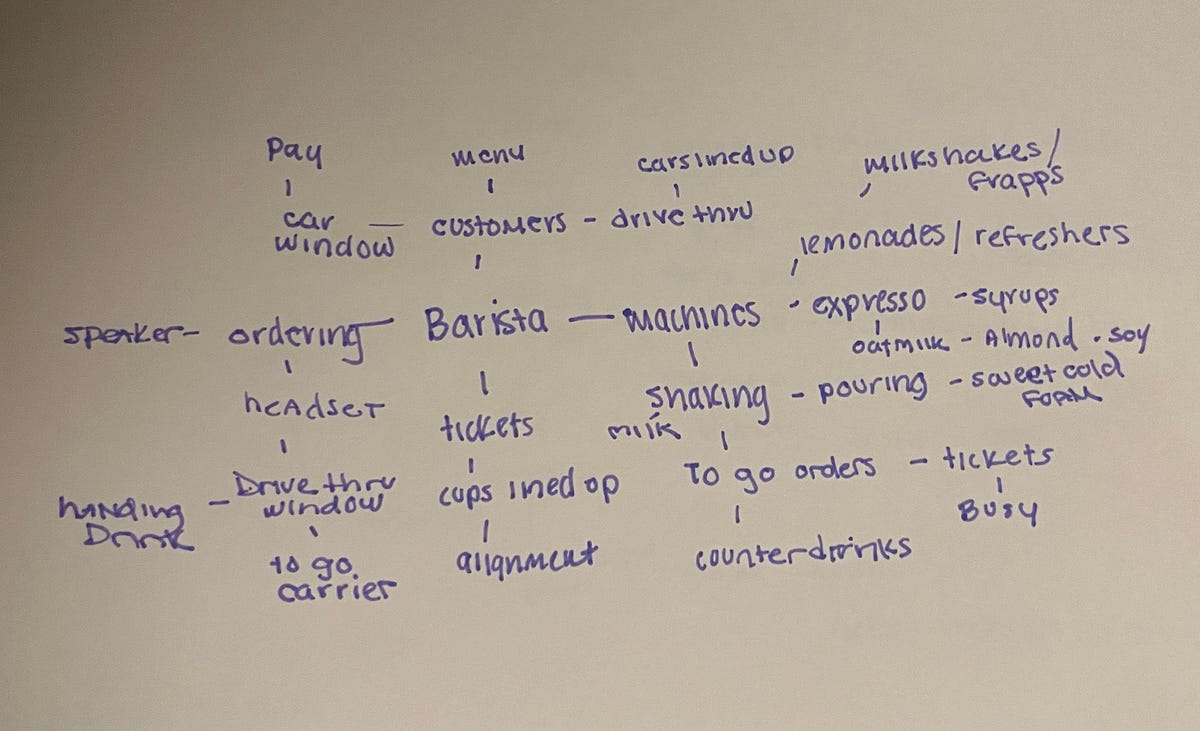 Pay menu cars lined up milkshakes/
frapp's
car — customers - drive thru
window
lemonades / refreshers
speaker - ordering — Barista — machines - expresso - syrups
oatmilk - Almond . soy
headset tickets shaking - pouring - sweet cold
foam
milk
Drive thru cups lined up To go orders - tickets
handing - window
Drink Busy
to go alignment counter drinks
carrier